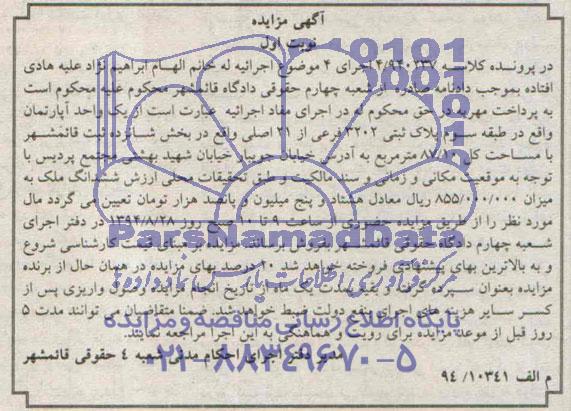 آگهی مزایده
نوبت اول
در پرونده کلاسه ۴/۹۴۰۲۳۷ اجرای ۴ موضوع اجرائیه له خانم الهام ابراهیم نژاد علیه هادی
افتاده بموجب دادنامه صادره از شعبه چهارم حقوقی دادگاه قائمشهر محکوم علیه محکوم است
به پرداخت مهریه در حق محکوم له در اجرای مفاد اجرائیه عبارت است از یک واحد آپارتمان
واقع در طبقه سوم پلاک ثبتی ۳۲۰۲ فرعی از ۲۱ اصلی واقع در بخش شانزده ثبت قائمشهر
با مساحت کل مترمربع به آدرس خیابان جویبار خیابان شهید بهشتی مجتمع پردیس با
توجه به موقعیت مکانی و زمانی و سند مالکیت و طبق تحقیقات محلی ارزش ششدانگ ملک به
میزان ۸۵۵/۰۰۰/۰۰۰ ریال معادل هشتاد و پنج میلیون و پانصد هزار تومان تعیین می گردد مال
مورد نظر را از طریق مزایده حضوری از ساعت ۹ تا ۱۰ صبح روز ۱۳۹۴/۸/۲۸ در دفتر اجرای
شعبه چهارم دادگاه حقوقی قائمشهر بفروش برسانند مزایده از مبنای قیمت کارشناسی شروع
و به بالاترین بهای پیشنهادی فروخته خواهد شد ۱۰ درصد بهای مزایده در همان حال از برنده
مزایده بعنوان سپرده گرفته و بقیه بمدت یک ماه از تاریخ انجام مزایده وصول واریزی پس از
کسر سایر هزینه های اجرای بنفع دولت ضبط خواهد شد. ضمنا متقاضیان می توانند مدت ۵
روز قبل از موعد مزایده برای رویت و هماهنگی به این اجرا مراجعه نمایند.
مدیر دفتر اجرای احکام مدنی شعبه ۴ حقوقی قائمشهر
م الف ۹۴/۱۰۳۴۱
ParsNamadData
پایگاه اطلاع رسانی مناقصه و مزایده
۰۲۱-۸۸۳۴۹۶۷۰-۵